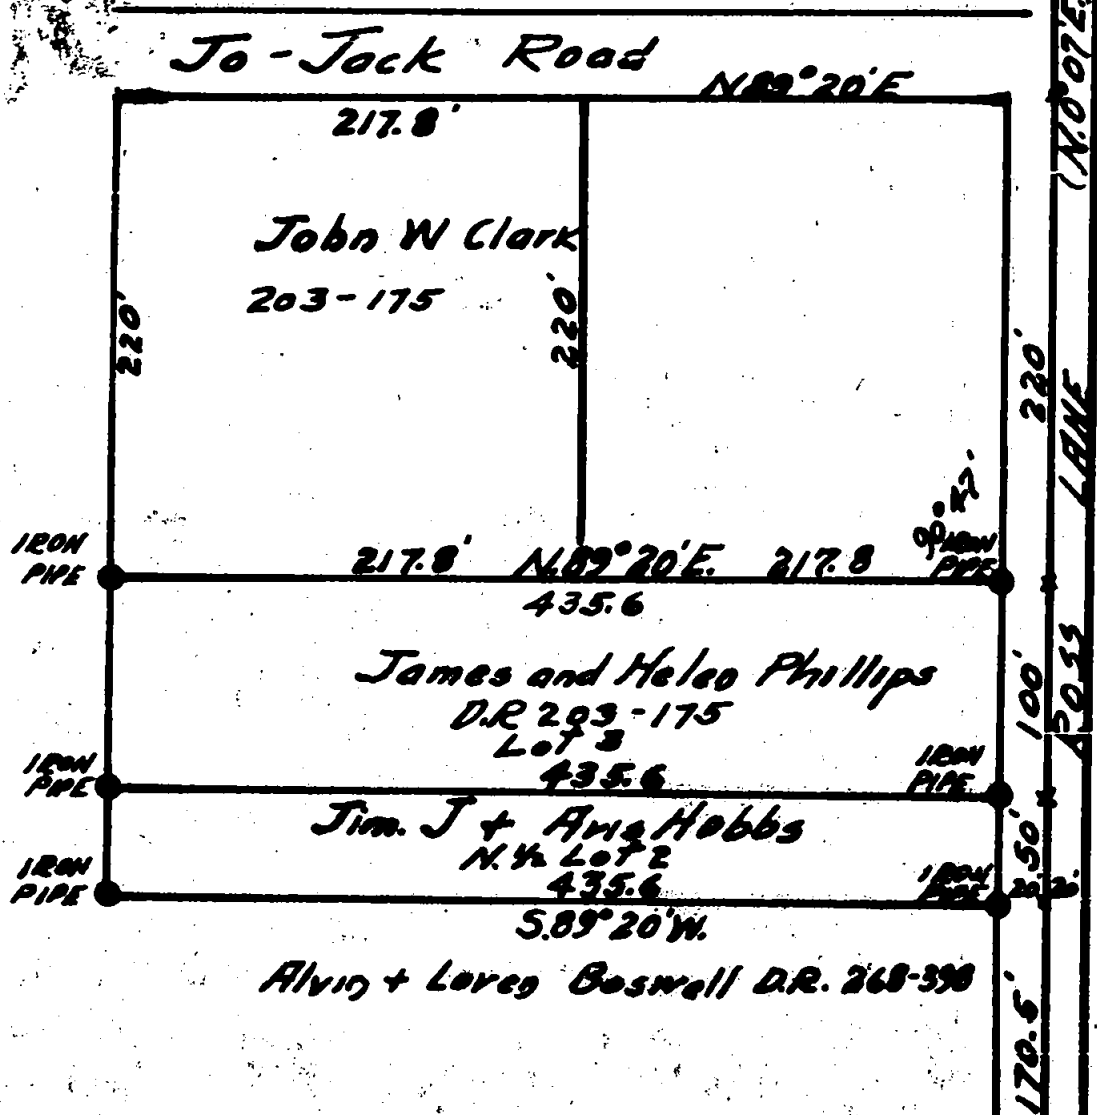 Jo-Jack Road
N89°20'E
(N.0°07'E.
217.8'
John W Clark
203-175
220'
220'
220'
LANE
IRON
PIPE
217.8' N.89°20'E. 217.8
IRON
PIPE
435.6
James and Helen Phillips
D.R 203-175
Lot 3
100'
ROSS
IRON
PIPE
435.6
IRON
PIPE
Jim. J + Aris Hobbs
N. ½ Lot 2
50'
IRON
PIPE
435.6
IRON
PIPE
20' 20'
S.89°20'W.
Alvin + Loren Boswell D.R. 268-398
170.5'